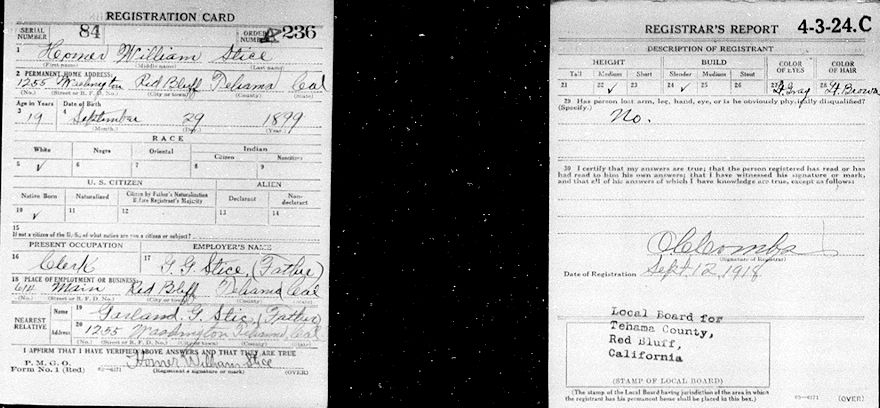 REGISTRATION CARD
SERIAL NUMBER 84 ORDER NUMBER A 236
1 Homer William Stice
(First name) (Middle name) (Last name)
2 PERMANENT HOME ADDRESS:
1255 Washington Red Bluff Tehama Cal
(No.) (Street or R. F. D. No.) (City or town) (County) (State)
Age in Years Date of Birth
3 19 4 September 29 1899
(Month.) (Day.) (Year.)
RACE
White Negro Oriental Indian
Citizen Noncitizen
5 ✓ 6 7 8 9
U. S. CITIZEN ALIEN
Native Born Naturalized Citizen by Father's Naturalization Before Registrant's Majority Declarant Non-declarant
10 ✓ 11 12 13 14
15
If not a citizen of the U. S., of what nation are you a citizen or subject?
PRESENT OCCUPATION EMPLOYER'S NAME
16 Clerk 17 G. G. Stice, (Father)
18 PLACE OF EMPLOYMENT OR BUSINESS:
614 Main Red Bluff Tehama Cal
(No.) (Street or R. F. D. No.) (City or town) (County) (State)
NEAREST RELATIVE Name 19 Garland. G. Stice, (Father)
Address 20 1255 Washington Tehama, Cal
(No.) (Street or R. F. D. No.) (City or town) (County) (State)
I AFFIRM THAT I HAVE VERIFIED ABOVE ANSWERS AND THAT THEY ARE TRUE
P. M. G. O.
Form No. 1 (Red) Homer William Stice
(Registrant's signature or mark) (OVER)
REGISTRAR'S REPORT 4-3-24. C
DESCRIPTION OF REGISTRANT
HEIGHT BUILD COLOR OF EYES COLOR OF HAIR
Tall Medium Short Slender Medium Stout
21 22 ✓ 23 24 ✓ 25 26 27 Gray 28 Lt. Brown
29 Has person lost arm, leg, hand, eye, or is he obviously physically disqualified?
(Specify.) No.
30 I certify that my answers are true; that the person registered has read or has
had read to him his own answers; that I have witnessed his signature or mark,
and that all of his answers of which I have knowledge are true, except as follows:
(Signature of Registrar)
Date of Registration Sept. 12, 1918
Local Board for
Tehama County,
Red Bluff,
California
(STAMP OF LOCAL BOARD)
(The stamp of the Local Board having jurisdiction of the area in which
the registrant has his permanent home shall be placed in this box.) (OVER)